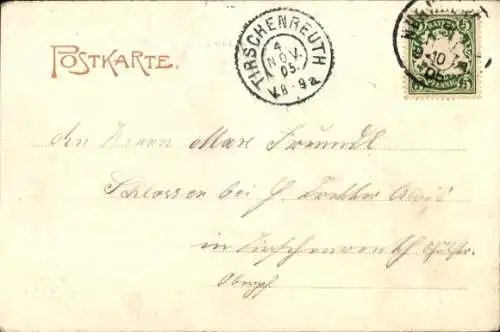 POSTKARTE.
TIRSCHENREUTH
4
NOV.
05.
V. 8-9a
BAYERN
5 5
PFENNIG
10
05
An Herrn Max Freundl
Schlosser bei H.
in Tirschenreuth
Oberpf.